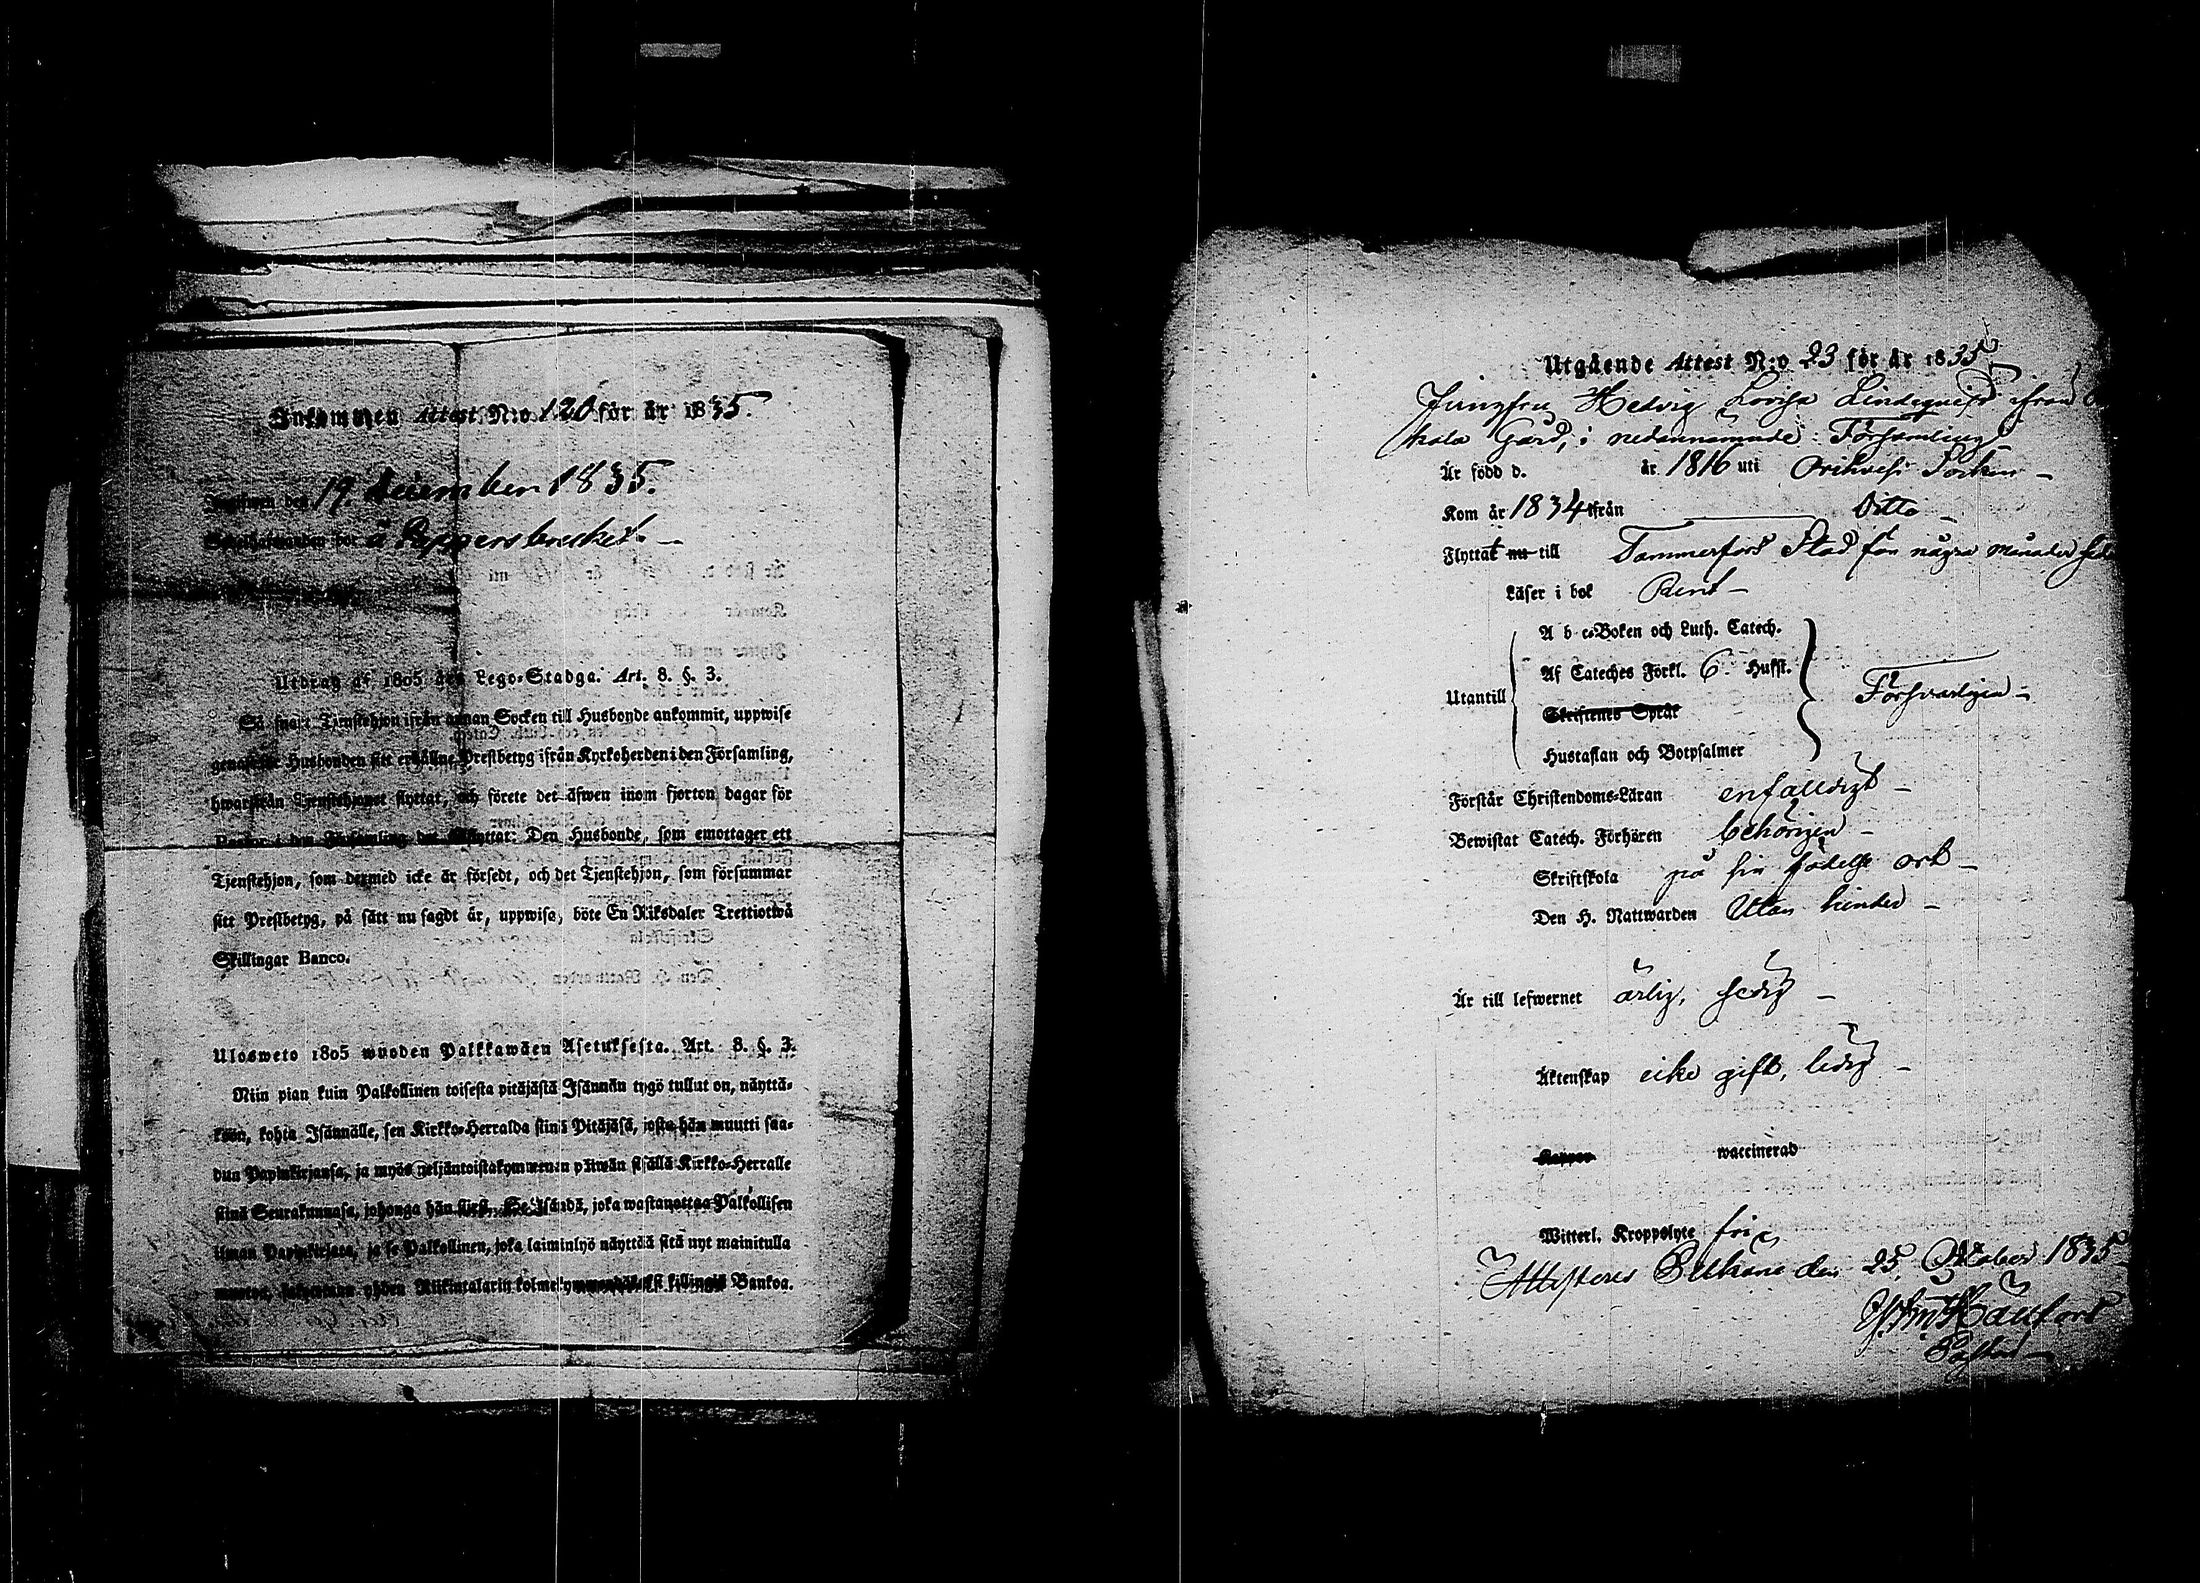 Inkommen Attest N:o 120 för år 1835.
Ingifwen den 19. december 1835.
bor å Pispersbacket. —
Utdrag af 1805 års Lego-Stadga. Art. 8. §. 3.
Så snart Tjenstehjon ifrån annan Socken till Husbonde ankommit, uppwise
genast för Husbonden sitt erhållne Prestbetyg ifrån Kyrkoherden i den Församling,
hwarifrån Tjenstehjonet flyttat, och förete det äfwen inom fjorton dagar för
Pastor i den Församling det tillflyttat: Den Husbonde, som emottager ett
Tjenstehjon, som dermed icke är försedt, och det Tjenstehjon, som försummar
sitt Prestbetyg, på sätt nu sagdt är, uppwisa, böte En Riksdaler Trettiotwå
Skillingar Banco.
Ulosweto 1805 wuoden Palkkawäen Asetuksesta. Art. 8. §. 3.
Niin pian kuin Palkollinen toisesta pitäjästä Isännän tygö tullut on, näyttä-
köön, kohta Isännälle, sen Kirkko-Herralda siinä Pitäjäsä, josta hän muutti saa-
dun Papinkirjansa, ja myös neljäntoistakymmenen päiwän sisällä Kirkko-Herralle
siinä Seurakunnasa, johonga hän siirsi. Se Isändä, joka wastanottaa Palkollisen
ilman Papinkirjata, ja se Palkollinen, joka laiminlyö näyttää sitä nyt mainitulla
muotoa, yhden Riikintalarin Killingiä Bankoa.
Utgående Attest N:o 23 för år 1835
Jungfru Hedvig Lovisa Lindeqvist ifrån
kala Gård, i nedannämnde Församling
Är född d. år 1816 uti Orihvesi Socken —
Kom år 1834 ifrån Ditto —
Flyttat nu till Tammerfors Stad för några månader
Läser i bok Rent —
A b c-Boken och Luth. Catech.
Af Cateches Förkl. 6. Hufst.
Utantill Försvarligen —
Skriftenes Språk
Hustaflan och Botpsalmer
Förstår Christendoms-Läran enfaldigt —
Bewistat Catech. Förhören behörigen —
Skriftskola på sin födelse ort —
Den H. Nattwarden Utan hinder —
Är till lefwernet ärlig, sedig —
Äktenskap icke gift, ledig —
Koppor waccinerad
Witterl. Kroppslyte fri
Attesteras Pelkäne den 25. October 1835
Hällfors
Pastor —